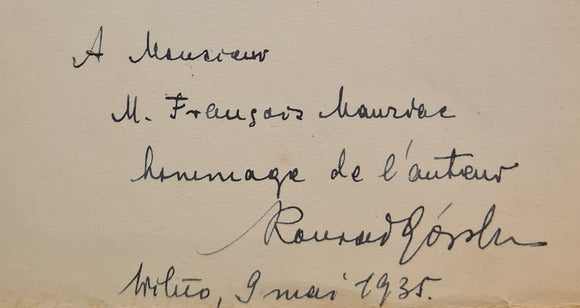 A Monsieur
M. François Mauriac
hommage de l'auteur
Konrad Górski
Wilno, 9 mai 1935.